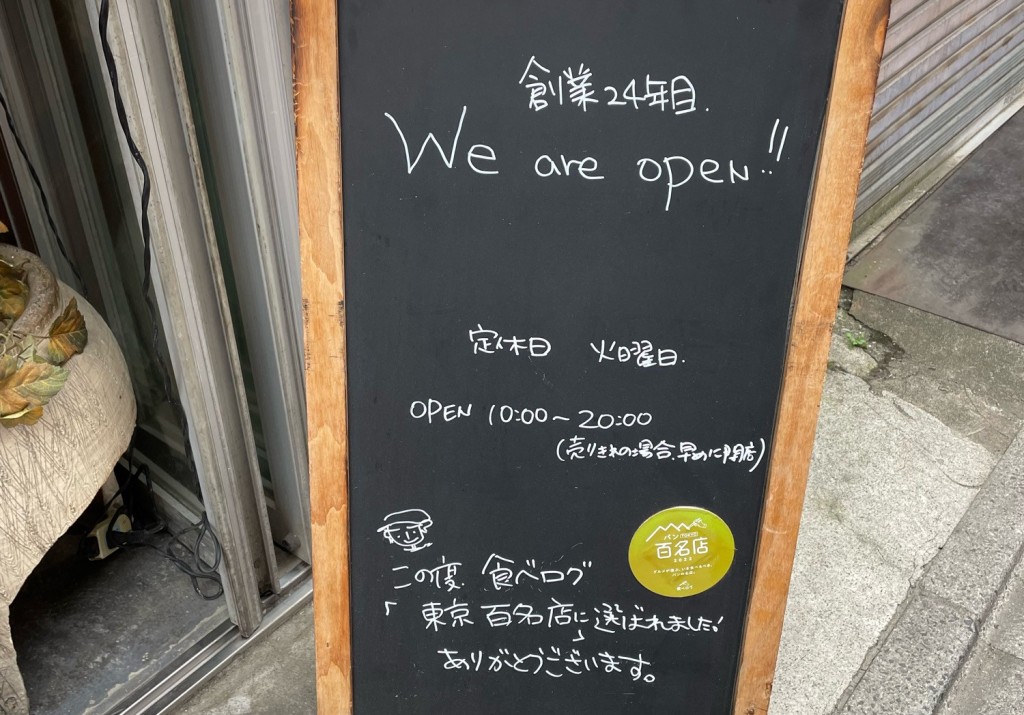 創業24年目.
We are open!!
定休日 火曜日.
OPEN 10:00~20:00
(売りきれの場合、早めに閉店)
パン TOKYO
百名店
2022
この度、食べログ
「東京 百名店」に選ばれました!
ありがとうございます。